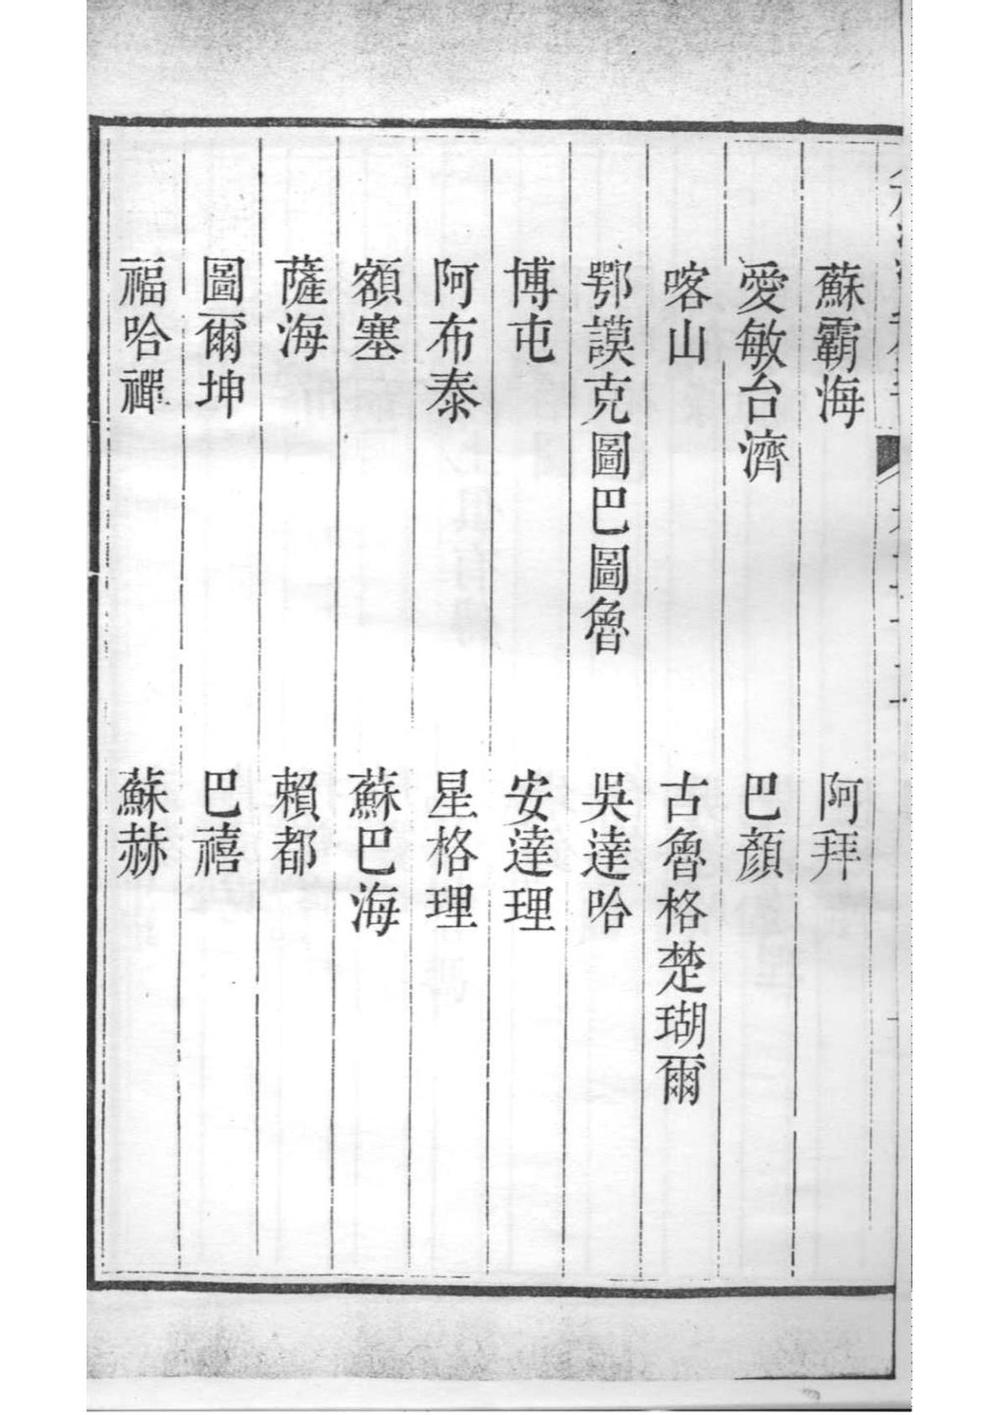 蘇霸海 阿拜
愛敏台濟 巴顏
喀山 古魯格楚瑚爾
鄂謨克圖巴圖魯 吳達哈
博屯 安達理
阿布泰 星格理
額塞 蘇巴海
薩海 賴都
圖爾坤 巴禧
福哈禪 蘇赫